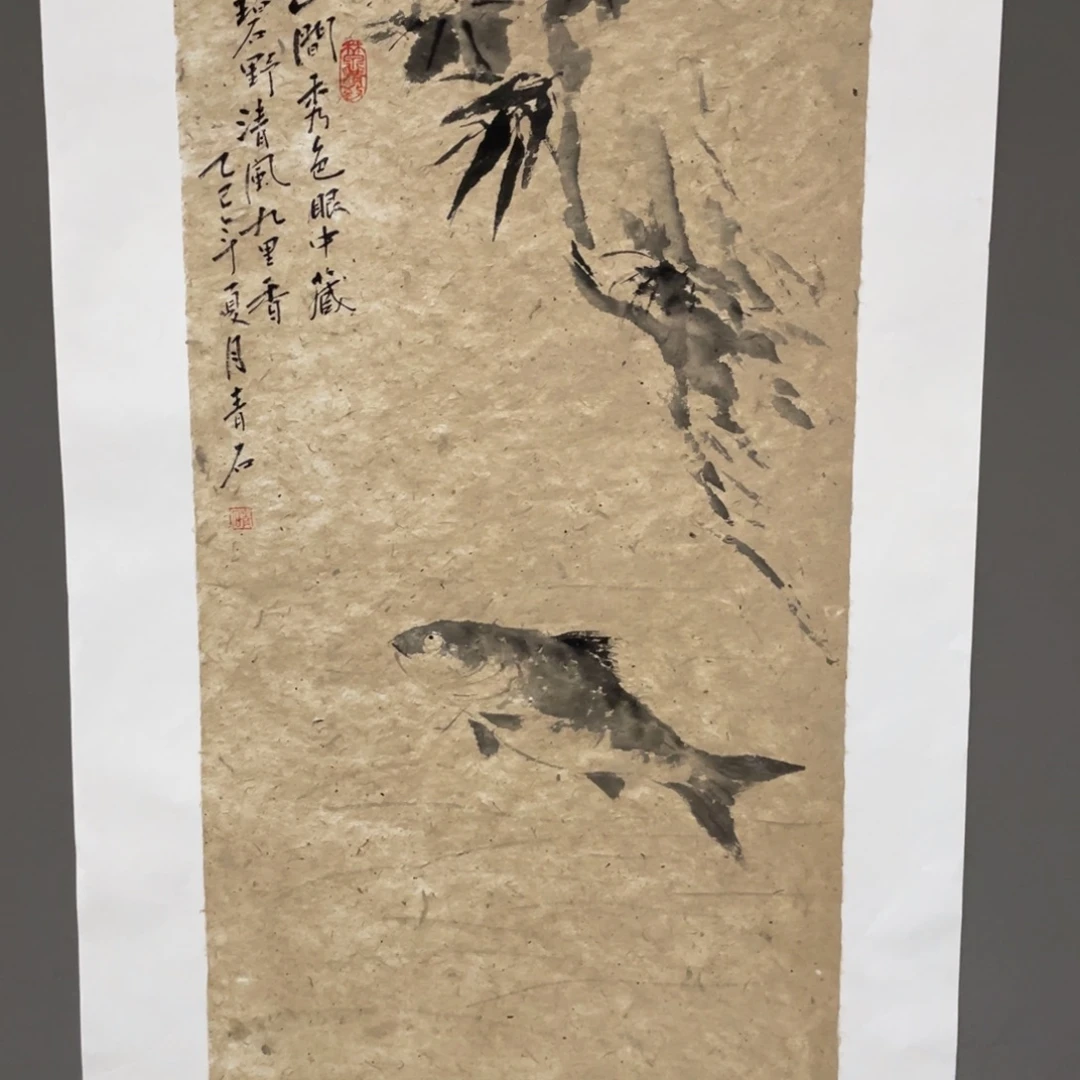 山間秀色眼中藏
碧野清風九里香
乙巳年夏月青石